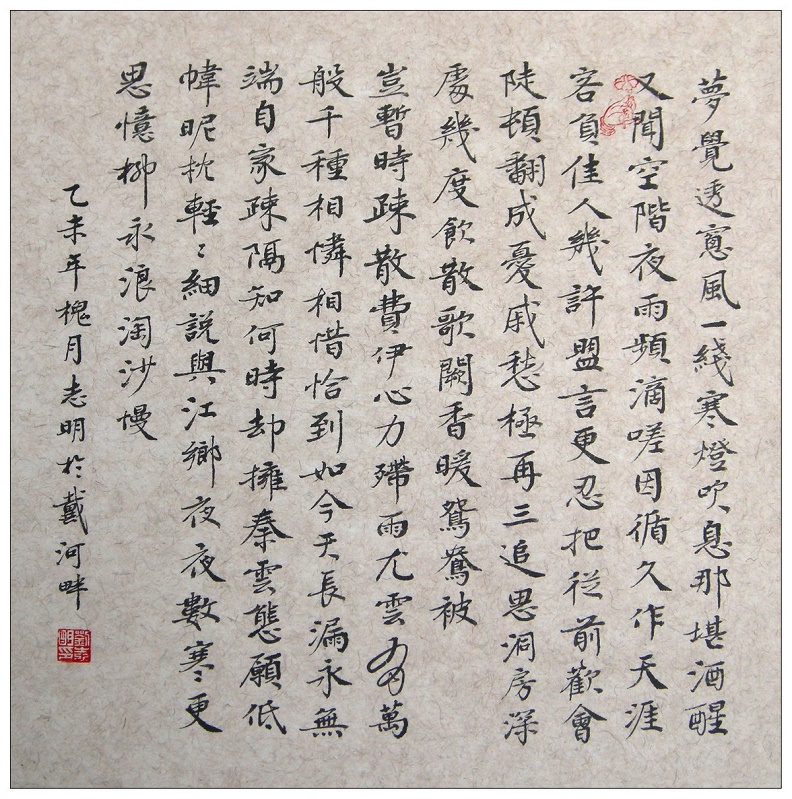 夢覺透窓風一綫寒燈吹息那堪酒醒
又聞空階夜雨頻滴嗟因循久作天涯
客負佳人幾許盟言更忍把從前歡會
陡頓翻成憂戚愁極再三追思洞房深
處幾度飲散歌闕香暖鴛鴦被
豈暫時疎散費伊心力殢雨尤雲有萬
般千種相憐相惜恰到如今天長漏永無
端自家疎隔知何時却擁秦雲態願低
幃昵枕輕〻細説與江鄉夜夜數寒更
思憶柳永浪淘沙慢
乙未年槐月志明於戴河畔